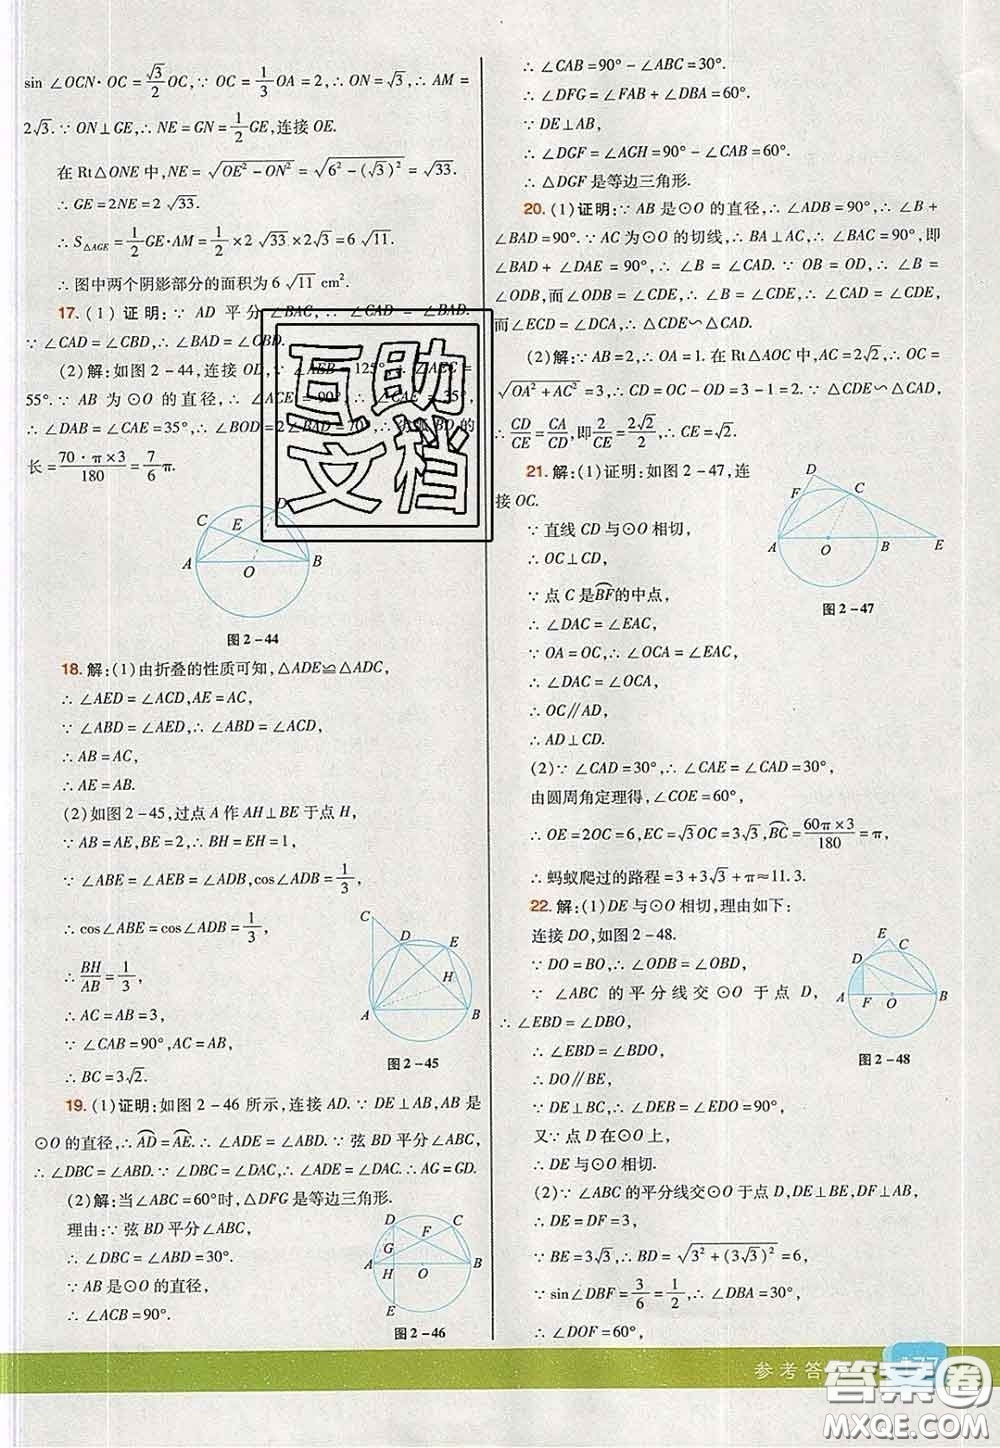 sin ∠OCN·OC=√3/2 OC,∵ OC=1/3 OA=2,∴ ON=√3,∴ AM=
2√3.∵ ON⊥GE,∴ NE=GN=1/2 GE,连接OE.
在 Rt△ONE中,NE=√(OE²-ON²)=√(6²-(√3)²)=√33.
∴ GE=2NE=2√33.
∴ S△AGE=1/2 GE·AM=1/2×2√33×2√3=6√11.
∴ 图中两个阴影部分的面积为6√11 cm².
17.(1)证明:∵ AD 平分∠BAC,∴ ∠CAD=∠BAD.
∵ ∠CAD=∠CBD,∴ ∠BAD=∠CBD.
(2)解:如图2-44,连接OD,∵ ∠AEB=125°,∴ ∠AEC=
55°.∵ AB 为⊙O 的直径,∴ ∠ACE=90°,∴ ∠CAE=35°,
∴ ∠DAB=∠CAE=35°,∴ ∠BOD=2∠BAD=70°,∴ BD的
长=70·π×3/180=7/6 π.
C E D
A O B
图2-44
18.解:(1)由折叠的性质可知,△ADE≌△ADC,
∴ ∠AED=∠ACD,AE=AC,
∵ ∠ABD=∠AED,∴ ∠ABD=∠ACD,
∴ AB=AC,
∴ AE=AB.
(2)如图2-45,过点A作AH⊥BE于点H,
∵ AB=AE,BE=2,∴ BH=EH=1,
∵ ∠ABE=∠AEB=∠ADB,cos∠ADB=1/3,
∴ cos∠ABE=cos∠ADB=1/3,
∴ BH/AB=1/3,
∴ AC=AB=3,
∵ ∠CAB=90°,AC=AB,
∴ BC=3√2.
C D E H
A B
图2-45
19.(1)证明:如图2-46所示,连接AD.∵ DE⊥AB,AB是
⊙O的直径,∴ AD=AE.∴ ∠ADE=∠ABD.∵ 弦BD平分∠ABC,
∴ ∠DBC=∠ABD.∵ ∠DBC=∠DAC,∴ ∠ADE=∠DAC.∴ AG=GD.
(2)解:当∠ABC=60°时,△DFG是等边三角形.
理由:∵ 弦BD平分∠ABC,
∴ ∠DBC=∠ABD=30°.
∵ AB是⊙O的直径,
∴ ∠ACB=90°.
D C
G F
A H O B
E
图2-46
∴ ∠CAB=90°-∠ABC=30°.
∴ ∠DFG=∠FAB+∠DBA=60°.
∵ DE⊥AB,
∴ ∠DGF=∠AGH=90°-∠CAB=60°.
∴ △DGF是等边三角形.
20.(1)证明:∵ AB是⊙O的直径,∴ ∠ADB=90°,∴ ∠B+
∠BAD=90°.∵ AC为⊙O的切线,∴ BA⊥AC,∴ ∠BAC=90°,即
∠BAD+∠DAE=90°,∴ ∠B=∠CAD.∵ OB=OD,∴ ∠B=
∠ODB,而∠ODB=∠CDE,∴ ∠B=∠CDE,∴ ∠CAD=∠CDE,
而∠ECD=∠DCA,∴ △CDE∽△CAD.
(2)解:∵ AB=2,∴ OA=1.在Rt△AOC中,AC=2√2,∴ OC=
√(OA²+AC²)=3,∴ CD=OC-OD=3-1=2.∵ △CDE∽△CAD,
∴ CD/CE=CA/CD,即2/CE=2√2/2,∴ CE=√2.
21.解:(1)证明:如图2-47,连
接OC.
∵ 直线CD与⊙O相切,
∴ OC⊥CD,
∵ 点C是BF的中点,
∴ ∠DAC=∠EAC,
∵ OA=OC,∴ ∠OCA=∠EAC,
∴ ∠DAC=∠OCA,
∴ OC∥AD,
∴ AD⊥CD.
D C
F
A O B E
图2-47
(2)∵ ∠CAD=30°,∴ ∠CAE=∠CAD=30°,
由圆周角定理得,∠COE=60°,
∴ OE=2OC=6,EC=√3OC=3√3,BC=60π×3/180=π,
∴ 蚂蚁爬过的路程=3+3√3+π≈11.3.
22.解:(1)DE与⊙O相切,理由如下:
连接DO,如图2-48.
∵ DO=BO,∴ ∠ODB=∠OBD,
∵ ∠ABC 的平分线交⊙O于点D,
∴ ∠EBD=∠DBO,
∴ ∠EBD=∠BDO,
∴ DO∥BE,
∵ DE⊥BC,∴ ∠DEB=∠EDO=90°,
又∵ 点D在⊙O上,
∴ DE与⊙O相切.
E C
D
A F O B
图2-48
(2)∵ ∠ABC的平分线交⊙O于点D,DE⊥BE,DF⊥AB,
∴ DE=DF=3,
∵ BE=3√3,∴ BD=√(3²+(3√3)²)=6,
∵ sin∠DBF=3/6=1/2,∴ ∠DBA=30°,
∴ ∠DOF=60°,
参考答
互助
文档
答案圈
MXQE.COM